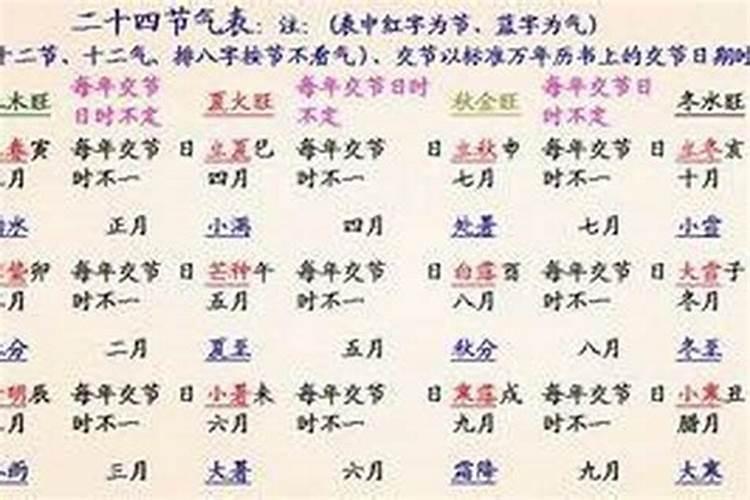 二十四节气表：注：(表中红字为节、蓝字为气)
十二节、十二气、排八字按节不看气)、交节以标准万年历书上的交节日期时
木旺 每年交节日时不定 夏火旺 每年交节日时不定 秋金旺 每年交节日时不定 冬水旺
春寅 每年交节 日 立夏巳 每年交节 日 立秋申 每年交节 日 立冬亥
月 时不一 四月 时不一 七月 时不一 十月
水 正月 小满 四月 处暑 七月 小雪
蛰卯 每年交节 日 芒种午 每年交节 日 白露酉 每年交节 日 大雪子
月 时不一 五月 时不一 八月 时不一 冬月
分 二月 夏至 五月 秋分 八月 冬至
明辰 每年交节 日 小暑未 每年交节 日 寒露戌 每年交节 日 小寒丑
月 时不一 六月 时不一 九月 时不一 腊月
雨 三月 大暑 六月 霜降 九月 大寒